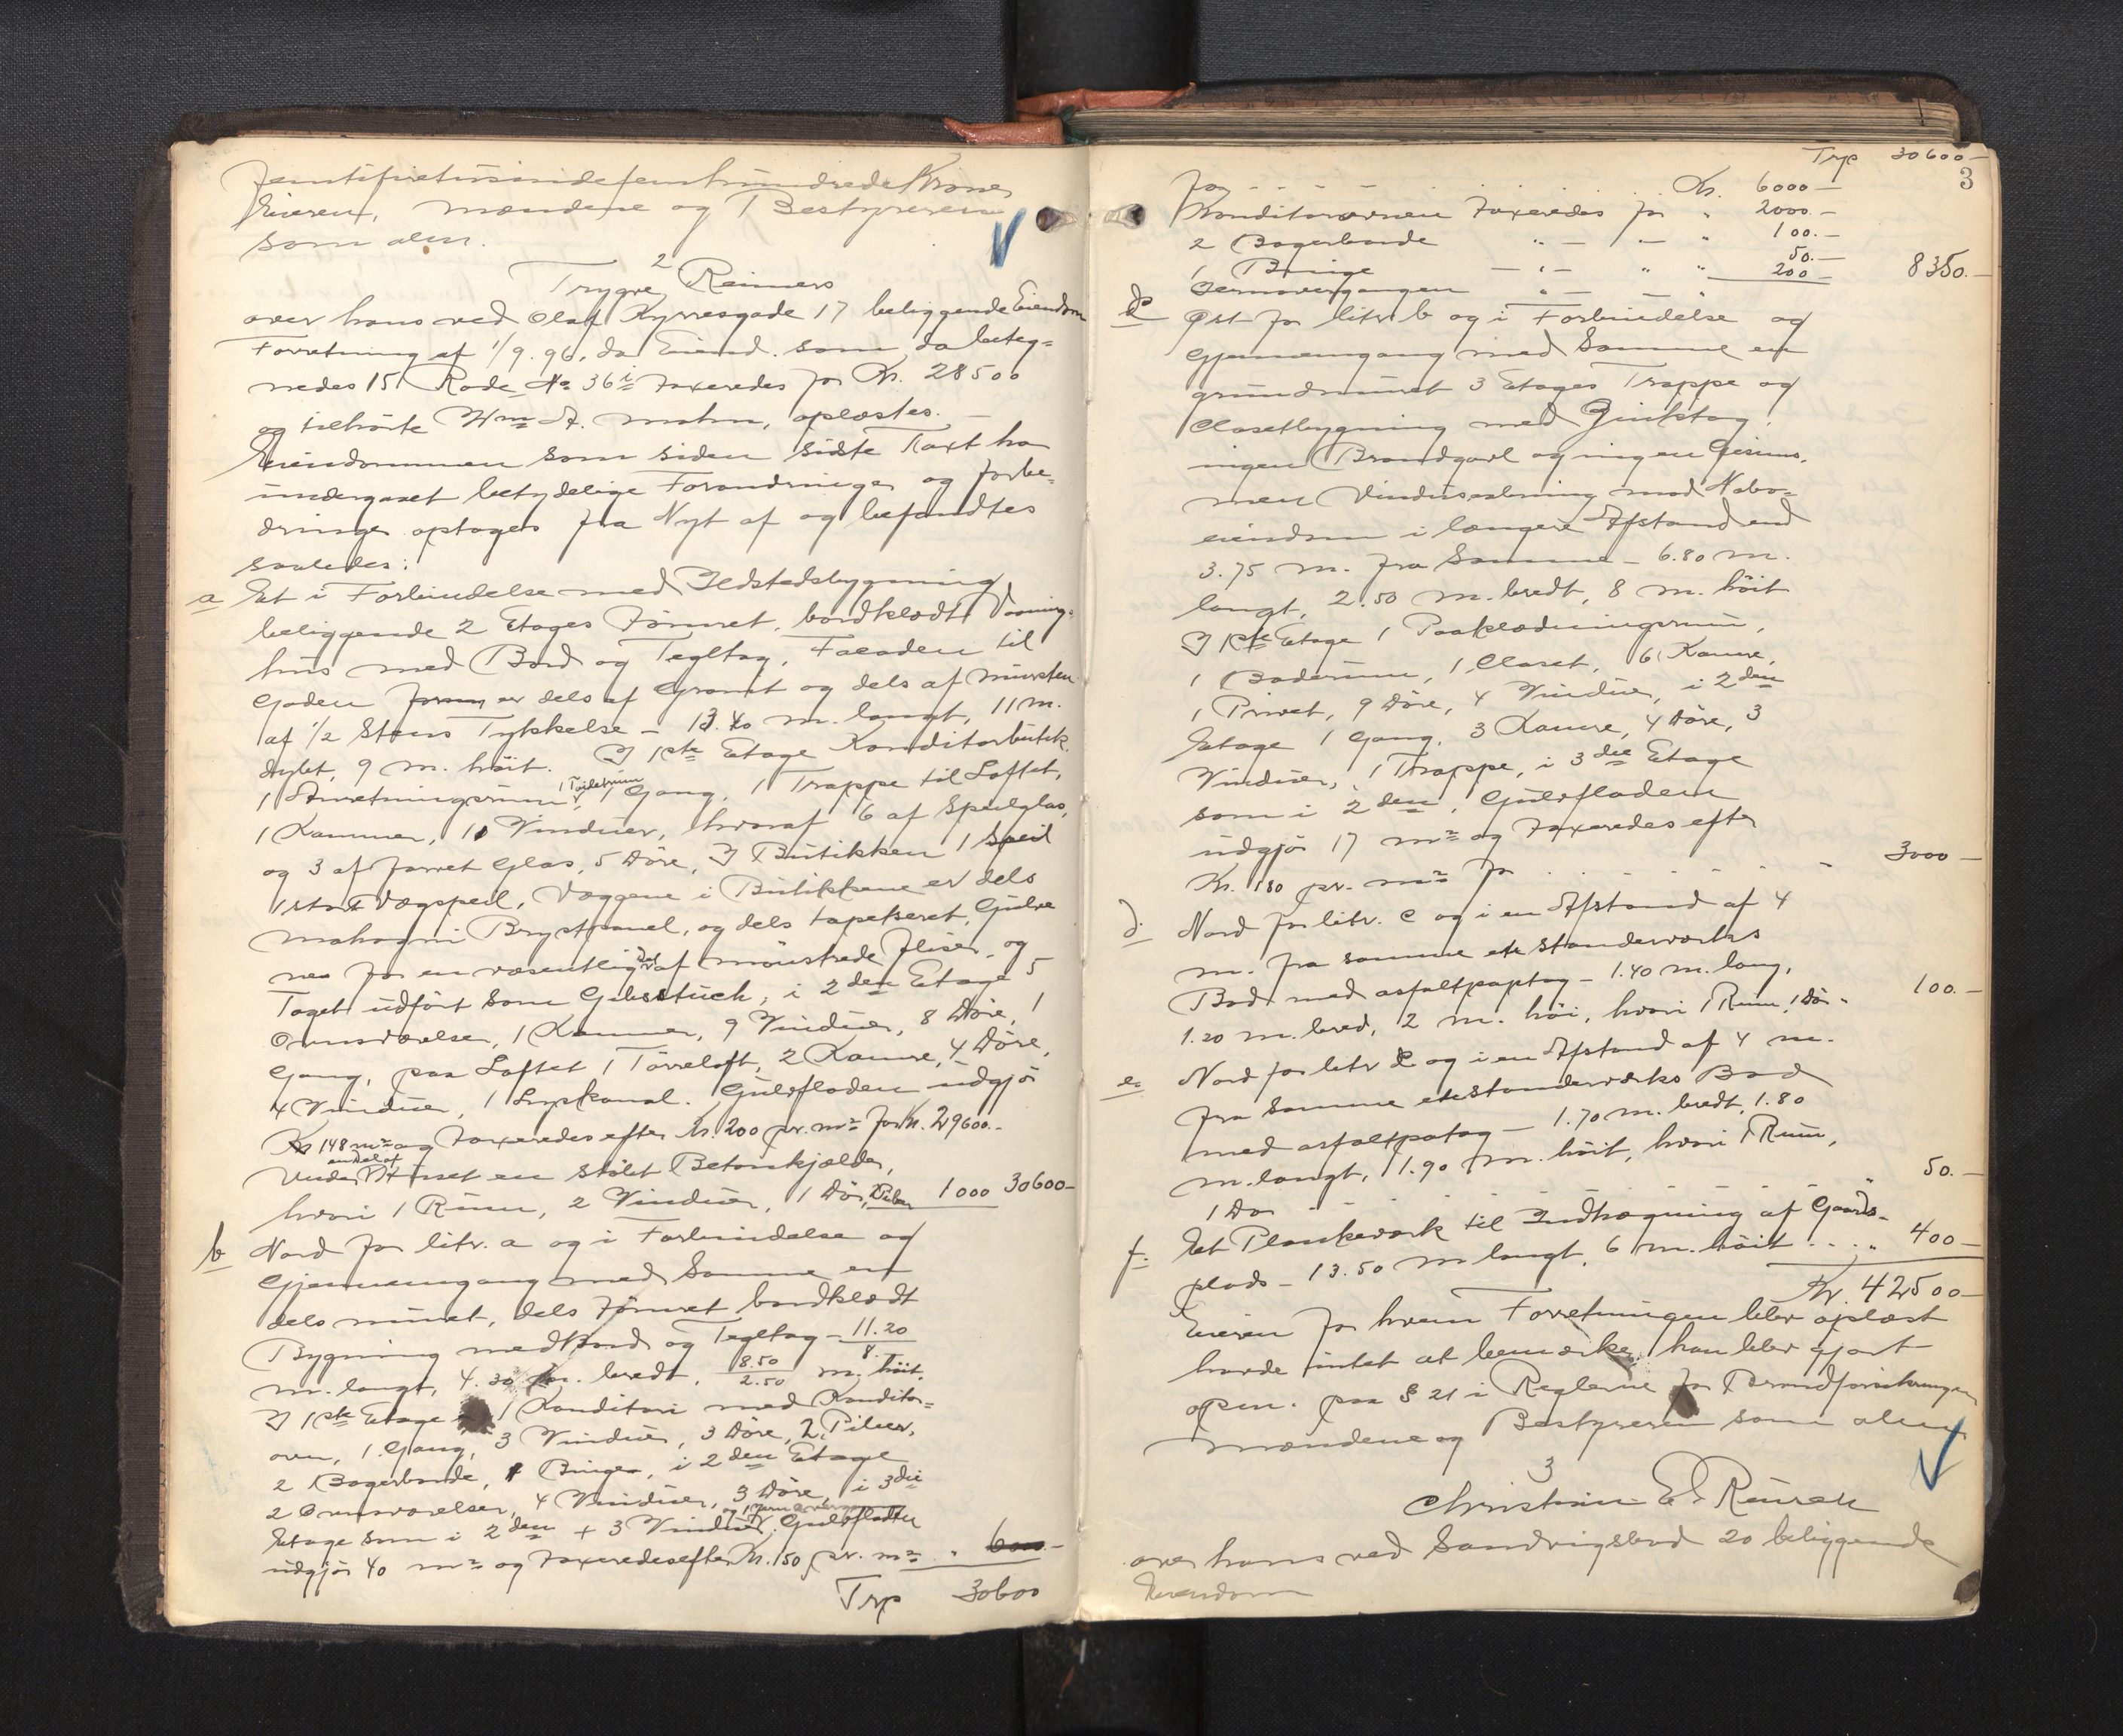 femtifiretusindefemhundrede Kroner
Eieren, Mændene og Bestyreren
som alm.
2
Trygve Reimers
over hans ved Olaf Kyrresgade 17 beliggende Eiendom
Forretning af 1/9.96, da Eiend. som da beteg=
nedes 15 Rode No 36 i taxeredes for Kr. 28500
og tilhørte Wm A. Mohn, oplæstes. —
Eiendommen som siden sidste Taxt har
undergaaet betydelige Forandringer og forbe=
dringer optoges fra Nyt af og befandtes
saaledes:
a Et i Forbindelse med Ildstedsbygning
beliggende 2 Etages tømret, bordklædt Vaaning=
hus med Bord og Tegltag. Facaden til
Gaden er dels af Granit og dels af Mursten
af 1/2 Stens Tykkelse – 13.40 m. langt, 11 m.
dybt, 9 m. höit. I 1ste Etage Konditorbutik,
1 Anretningsrum, 1 Toiletrum 1 Gang, 1 Trappe til Loftet,
1 Kammer, 10 Vinduer, hvoraf 6 af Speilglas,
og 3 af farvet Glas, 5 Döre, I Butikken 1 Speil
1 stort Vægspeil, Væggene i Butikkene er dels
Mahogni Brystpanel, og dels tapetseret, Gulve
nes for en væsentlig Del af mönstrede Fliser, og
Taget udfört som Gibsstuck, i 2den Etage 5
Ovnsværelser, 1 Kammer, 9 Vinduer, 8 Döre, 1
Gang, paa Loftet 1 Törreloft, 2 Kamre, 4 Döre,
4 Vinduer, 1 Lyskanal. Gulvfladen udgjör
148 m2 og taxeredes efter Kr. 200 pr. m2 for Kr. 29600.-
Under en Del af Huset en stöbt Betonkjælder,
hvori 1 Rum, 2 Vinduer, 1 Dör, 1000 30600-
b Nord for litr. a og i Forbindelse og
Gjennemgang med Samme en
dels muret, dels tømret bordklædt
Bygning med Bord og Tegltag – 11.20/8.
m. langt, 4.30 m. bredt, 8.50/2.50 m. höit.
I 1ste Etage 1 Konditori med Konditor=
ovn, 1 Gang, 3 Vinduer, 3 Döre, 2 Piber,
2 Bagerborde, 1 Binge, i 2den Etage
2 Ovnsværelser, 4 Vinduer, 3 Döre, i 3die
Etage som i 2den + 3 Vinduer. og 1 Jernovergang Gulvfladen
udgjör 40 m2 og taxeredes efter Kr. 150 pr. m2 " 6000.-
Trp 30600
Trp 30600-
3
for - - - - - Kr. 6000 -
Konditorovnen taxeredes for " 2000.-
2 Bagerborde " — " — " 100.-
1 Binge — " — " " 50.-
Jernovergangen " 200 - 8350.-
c Öst for litr b og i Forbindelse og
Gjennemgang med Samme en
grundmuret 3 Etages Trappe og
Closetbygning med Zinktag,
ingen Brandgavl og ingen Gesims,
men Vindusaabning mod Nabo=
eiendom i længere Afstand end
3.75 m. fra Samme – 6.80 m.
langt, 2.50 m. bredt, 8 m. höit
I 1ste Etage 1 Paaklædningsrum,
1 Baderum, 1 Closet, 6 Kamre,
1 Privet, 9 Döre, 4 Vinduer, i 2den
Etage 1 Gang, 3 Kamre, 4 Döre, 3
Vinduer, 1 Trappe, i 3die Etage
som i 2den. Gulvfladen
udgjör 17 m2 og taxeredes efter
Kr. 180 pr. m2 for - - - - 3000 -
d. Nord for litr. c og i en Afstand af 4
m. fra samme et Standerværks
Bod med asfaltpaptag – 1.40 m. lang,
1.20 m. bred, 2 m. höi, hvori 1 Rum, 1 Dör " 100.-
e. Nord for litr c og i en Afstand af 4 m.
fra Samme et Standerværks Bod
med asfaltpatag – 1.70 m. bredt, 1.80
m. langt, 1.90 m. höit, hvori 1 Rum,
1 Dör - - - - - " 50.-
f. Et Plankeværk til Indhegning af Gaards=
plads – 13.50 m langt, 6 m. höit . . . . " 400-
Kr. 42500-
Eieren for hvem Forretningen blev oplæst
havde intet at bemærke, han blev gjort
opm. paa § 21 i Reglerne for Brandforsikringen
Mændene og Bestyreren som alm.
3
Christian E. Reusch
over hans ved Sandvigsbod 20 beliggende
Eiendom